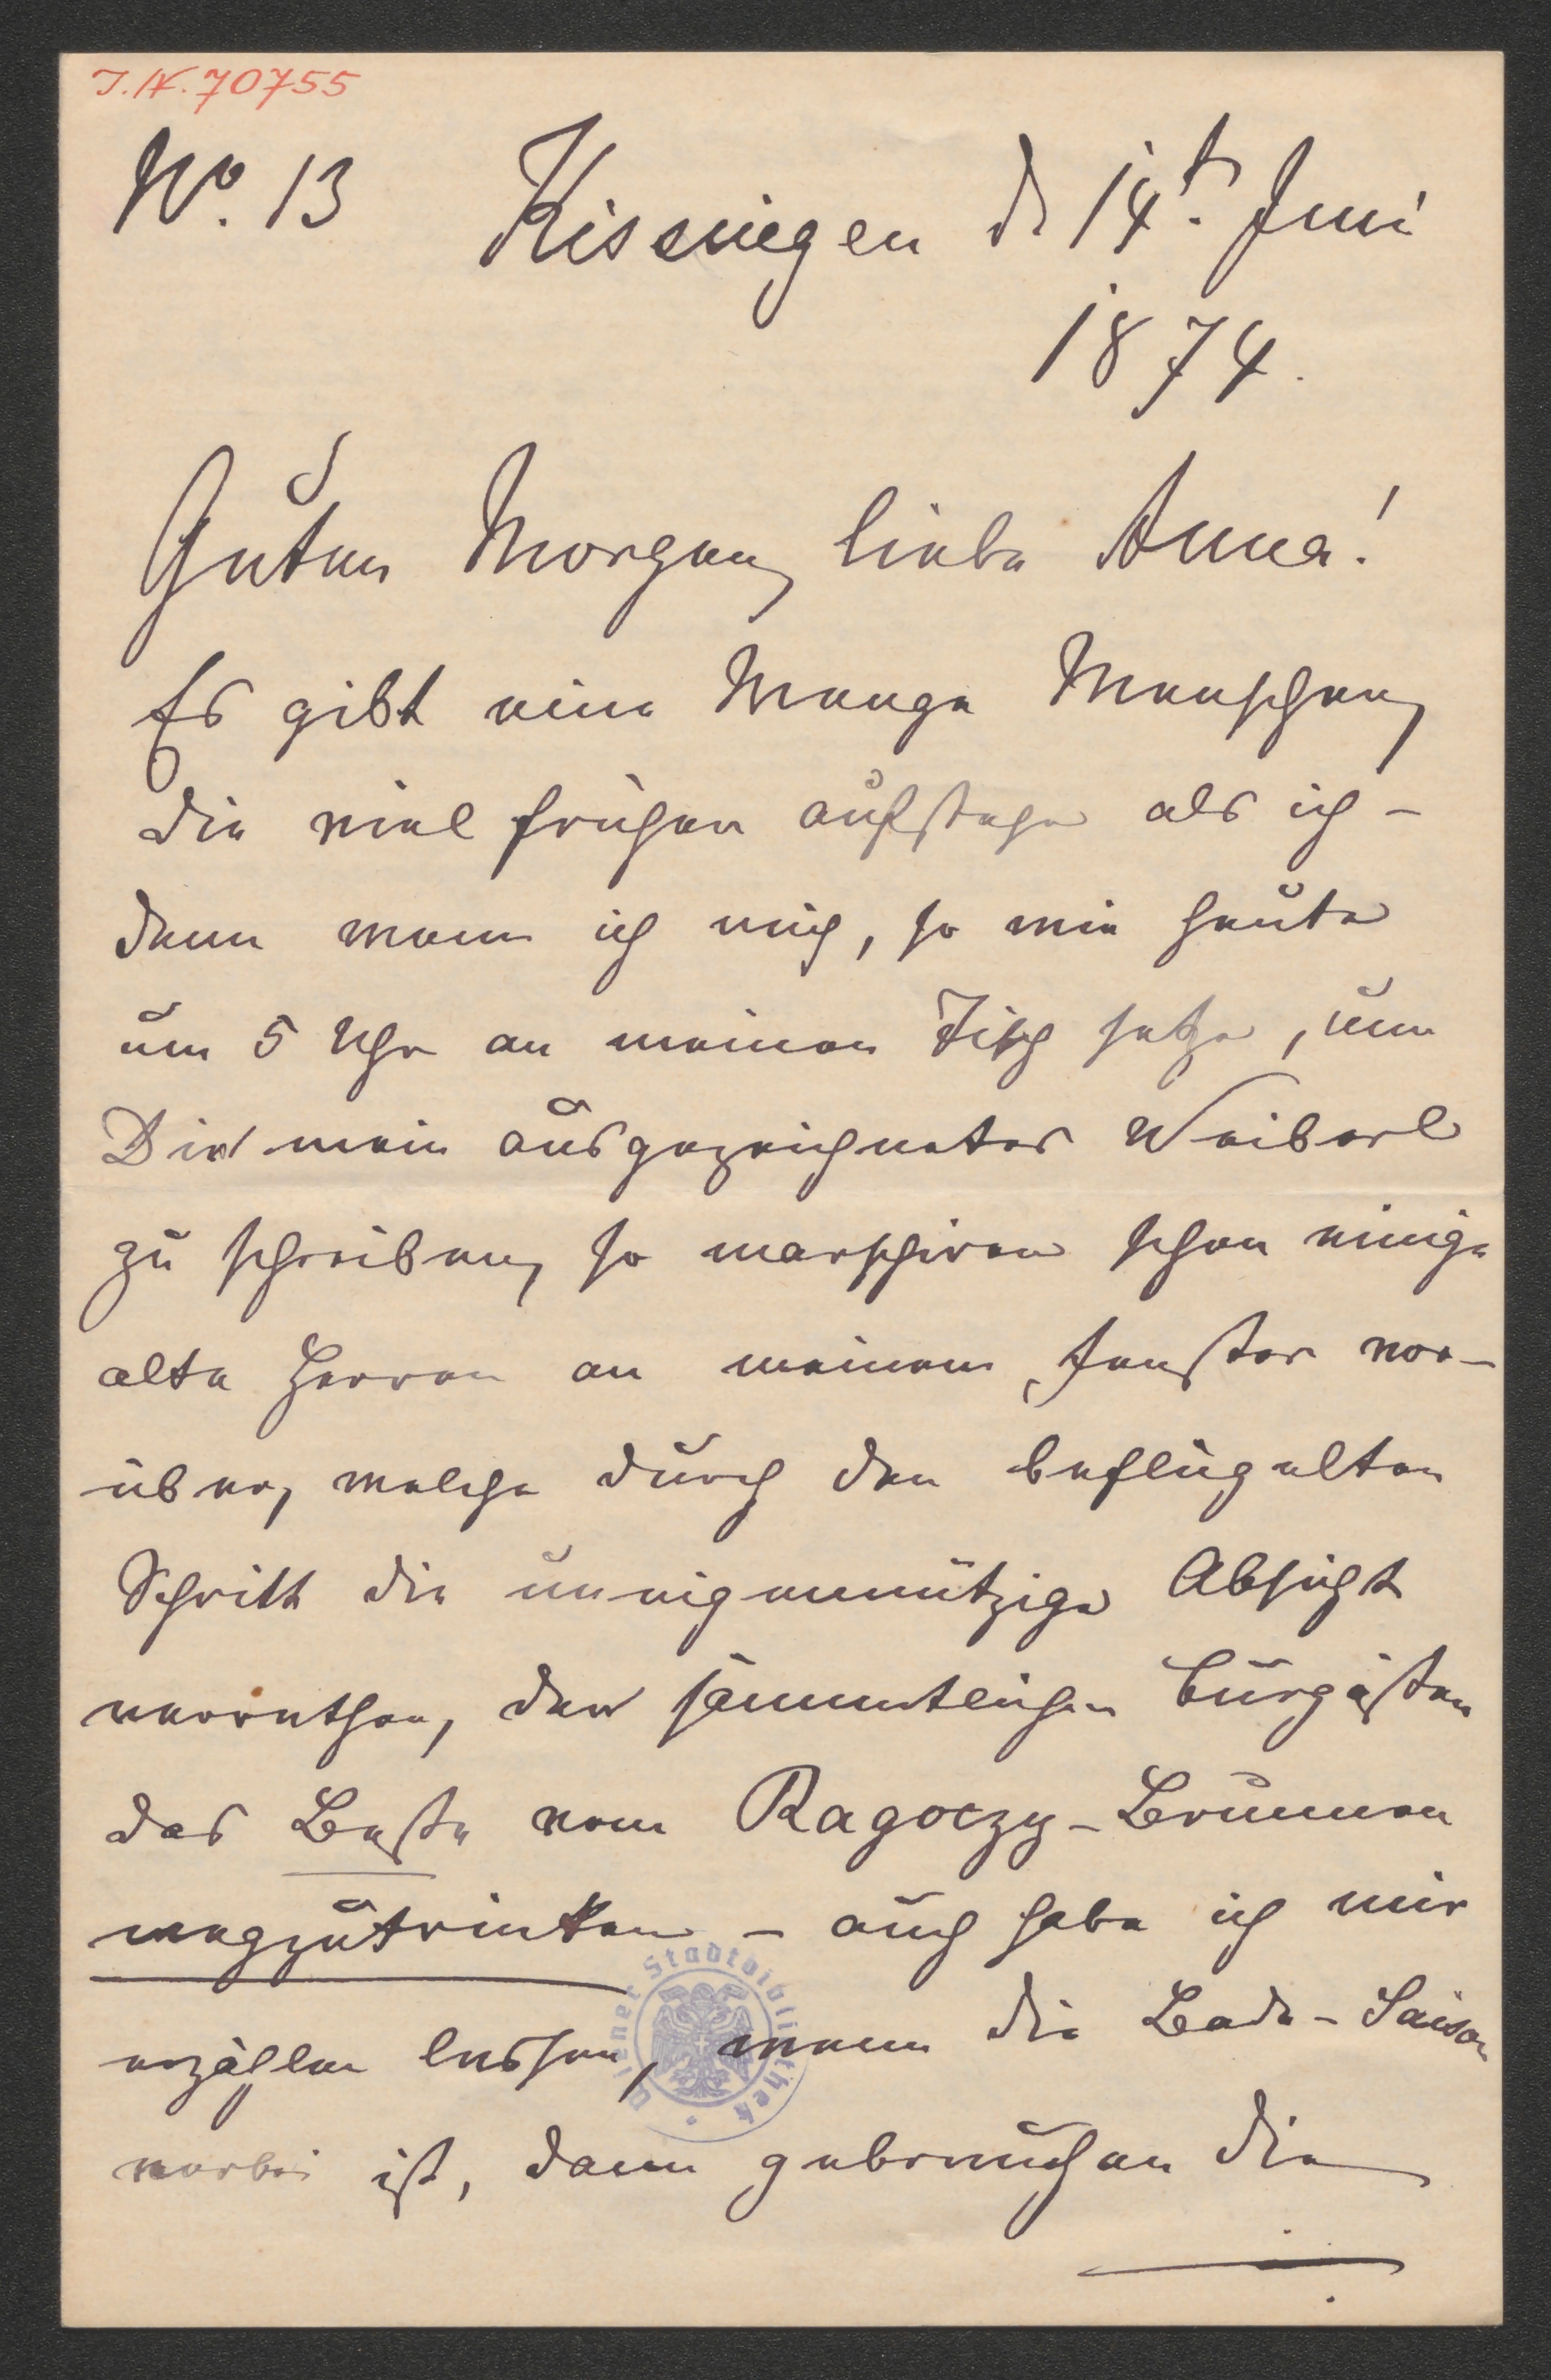 I.N. 70755
No. 13 Kissingen d 14t. Juni
1874.
Guten Morgen liebe Anna!
Es gibt eine Menge Menschen,
die viel früher aufstehen als ich –
denn wenn ich mich, so wie heute
um 5 Uhr an meinen Tisch setze, um
Dir mein ausgezeichnetes Weiberl
zu schreiben, so marschiren schon einige
alte Herren an meinem Fenster vor-
über, welche durch den beflügelten
Schritt die uneigennützige Absicht
verrathen, den sämmtlichen Curgästen
das Beste vom Ragoczy-Brunnen
wegzutrinken – auch habe ich mir
erzählen lassen, wenn die Bade-Saison
vorbei ist, dann gebrauchen die
Wiener Stadtbibliothek